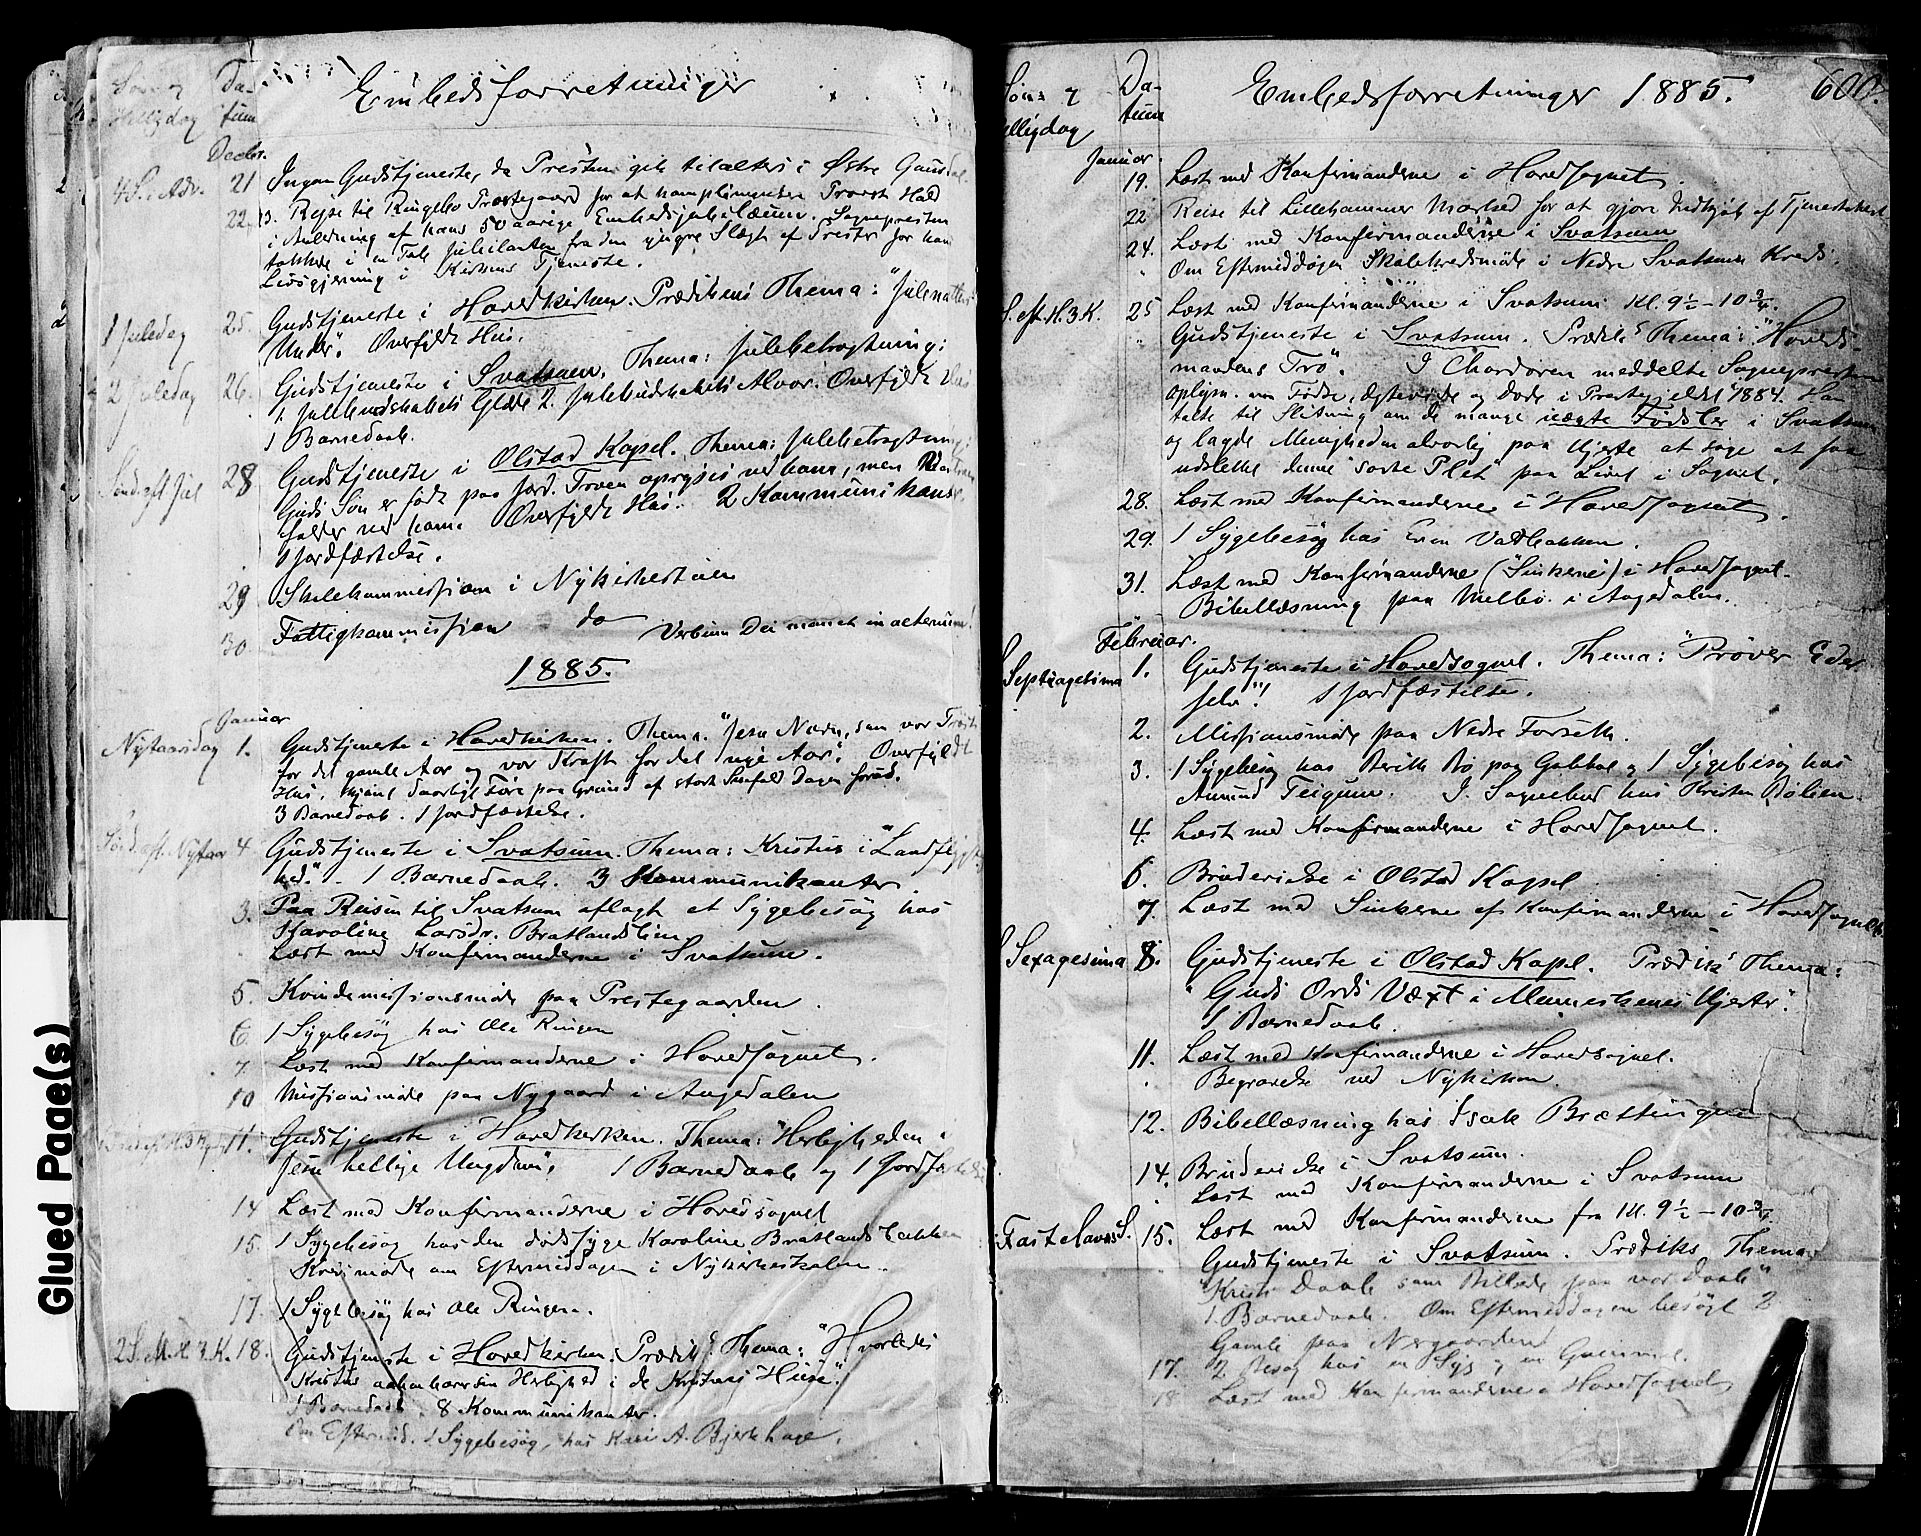 Embedsforretninger
Søn og Helligdag
Da-
tum
Decbr.
4 S. i Adv. 21 Ingen Gudstjeneste, da Presten gik tilalters i Østre Gausdal
22, 23. Rejse til Ringebo Præstegaard for at komplimentere Provst Hald
i Anledning af hans 50 aarige Embedsjubilæum. Sognepresten
takkede i en Tale Jubilanten fra den yngre Slægt af Prester for hans
Livsgjerning i Kirkens Tjeneste.
1 Juledag 25. Gudstjeneste i Hovedkirken. Prædikens Thema: "Julenattens
Under". Overfyldt Hus.
2 Juledag 26. Gudstjeneste i Svatsum. Thema: Julebetragtning:
1. Julebudskabets Glæde 2. Julebudskabets Alvor. Overfyldt Hus
1 Barnedaab.
Sønd. eft. Jul 28 Gudstjeneste i Olstad Kapel. Thema: Julebetragtning:
Guds Søn er født paa Jord. Troen oprejses ved ham, men
falder ved ham. Overfyldt Hus. 2 Kommunikanter.
1 Jordfæstelse.
29 Skolekommission i Nykirkestuen
30. Fattigkommission do Verbum Dei manet in aeternum!
1885.
Januar
Nytaarsdag 1. Gudstjeneste i Hovedkirken. Thema: "Jesu Navn, som vor Trøst
for det gamle Aar og vor Kraft for det nye Aar". Overfyldt
Hus, skjønt daarligt Føre paa Grund af stort Snefald Dagen forud.
3 Barnedaab. 1 Jordfæstelse.
Sønd. eft. Nytaar 4. Gudstjeneste i Svatsum. Thema: Kristus i "Landflygtig
hed". 1 Barnedaab. 3 Kommunikanter.
3. Paa Reisen til Svatsum aflagt et Sygebesøg hos
Karoline Larsdr. Bratlandslien
Læst med Konfirmanderne i Svatsum.
5. Kvindemissionsmøde paa Prestegaarden.
6. 1 Sygebesøg hos Ole Ringen
7 Læst med Konfirmanderne i Hovedsognet.
10 Missionsmøde paa Nygaard i Augedalen
11. Gudstjeneste i Hovedkirken. Thema: "Herligheden i
Jesu hellige Ungdom". 1 Barnedaab og 1 Jordfæstelse
14 Læst med Konfirmanderne i Hovedsognet
15. 1 Sygebesøg hos den dødssyge Karoline Bratlandsbakken
Kredsmøde om Eftermiddagen i Nykirkeskolen.
17. 1 Sygebesøg hos Ole Ringen.
2 S. e. H. 3 K. 18. Gudstjeneste i Hovedkirken. Prædik.s Thema: "Hvorledes
Kristus aabenbarer sin Herlighed i de Kristnes Huse".
1 Barnedaab. 8 Kommunikanter.
Om Eftermid. 1 Sygebesøg hos Kari A. Bjerkhage.
Embedsforretninger 1885. 600.
Søn- og
Helligdag
Da-
tum
Januar.
19. Læst med Konfirmanderne i Hovedsognet.
22 Reise til Lillehammer Marked for at gjøre Indkjøb af Tjenestehest
24. Læst med Konfirmanderne i Svatsum
" Om Eftermiddagen Skolekredsmøde i Nedre Svatsum Kreds.
S. eft. H. 3 K. 25 Læst med Konfirmanderne i Svatsum Kl. 9½ – 10¾
" Gudstjeneste i Svatsum. Prædik.s Thema: "Høveds-
mandens Tro". I Chordøren meddelte Sognepresten
oplysn. om Fødte, Ægteviede og Døde i Prestegjeldet 1884. Han
talte til Slutning om de mange uægte Fødsler i Svatsum
og lagde Menigheden alvorlig paa Hjerte at søge at faa
udslettet denne "sorte Plet" paa Livet i Sognet.
28. Læst med Konfirmanderne i Hovedsognet.
29. 1 Sygebesøg hos Even Valbakken.
31. Læst med Konfirmanderne ("Sinkerne") i Hovedsognet.
Bibellæsning paa Melbø i Augedalen.
Februar.
Septuagesima 1. Gudstjeneste i Hovedsognet. Thema: "Prøver Eder
selv"! 1 Jordfæstelse.
2. Missionsmøde paa Nedre Forseth.
3. 1 Sygebesøg hos Berith Bø paa Gakkol og 1 Sygebesøg hos
Amund Teigum. I Sognebud hos Kristen Bølien.
4. Læst med Konfirmanderne i Hovedsognet.
6. Brudevielse i Olstad Kapel
7. Læst med Sinkerne af Konfirmanderne i Hovedsognet.
Sexagesima 8. Gudstjeneste i Olstad Kapel. Prædik.s Thema:
"Guds Ords Væxt i Menneskenes Hjerter".
1 Barnedaab.
11. Læst med Konfirmanderne i Hovedsognet.
Begravelse ved Nykirken.
12. Bibellæsning hos Isak Brættingen
14. Brudevielse i Svatsum.
Læst med Konfirmanderne i Svatsum
Fastelavns S. 15. Læst med Konfirmanderne fra Kl. 9½ – 10¾
Gudstjeneste i Svatsum. Prædiks Thema
"Kristi Daab som Billede paa vor Daab"
1 Barnedaab. Om Eftermiddagen besøgt 2
Gamle paa Nørgaarden
17. 2 Besøg hos en Syg og en Gammel.
18. Læst med Konfirmanderne i Hovedsognet
Glued Page(s)